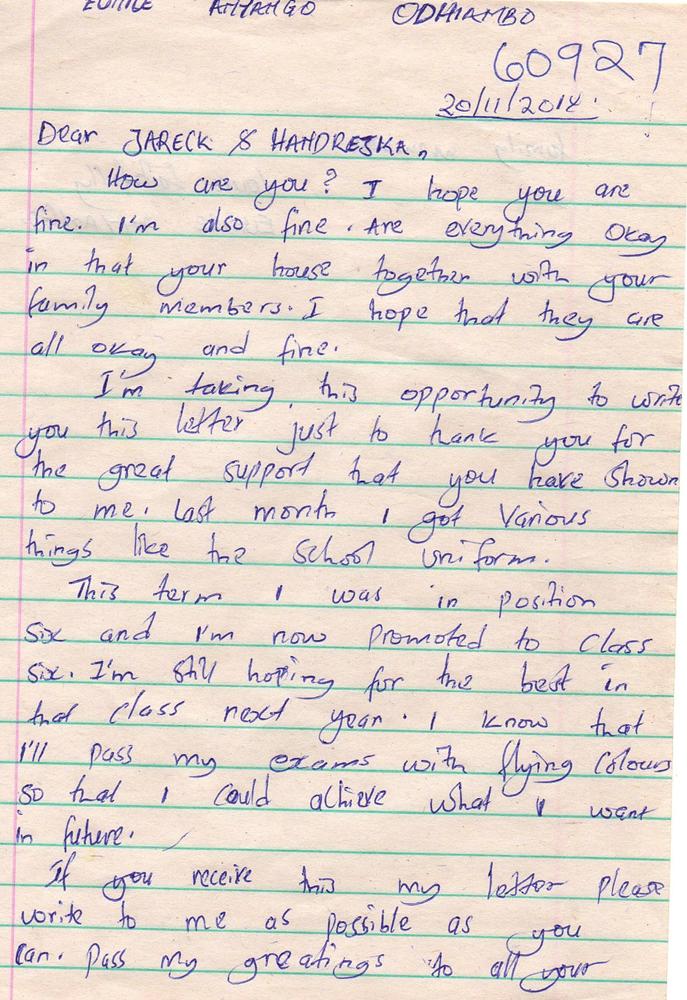 EUNICE ANYANGO ODHIAMBO
60927
20/11/2014.
Dear JARECK & HANDRESKA,
How are you? I hope you are
fine. I'm also fine. Are everything Okay
in that your house together with your
family members. I hope that they are
all okay and fine.
I'm taking this opportunity to write
you this letter just to thank you for
the great support that you have shown
to me. last month I got various
things like the school uniform.
This term I was in position
six and I'm now promoted to class
six. I'm still hoping for the best in
that class next year. I know that
I'll pass my exams with flying colours
so that I could achieve what I want
in future.
If you receive this my letter please
write to me as possible as you
can. Pass my greatings to all your